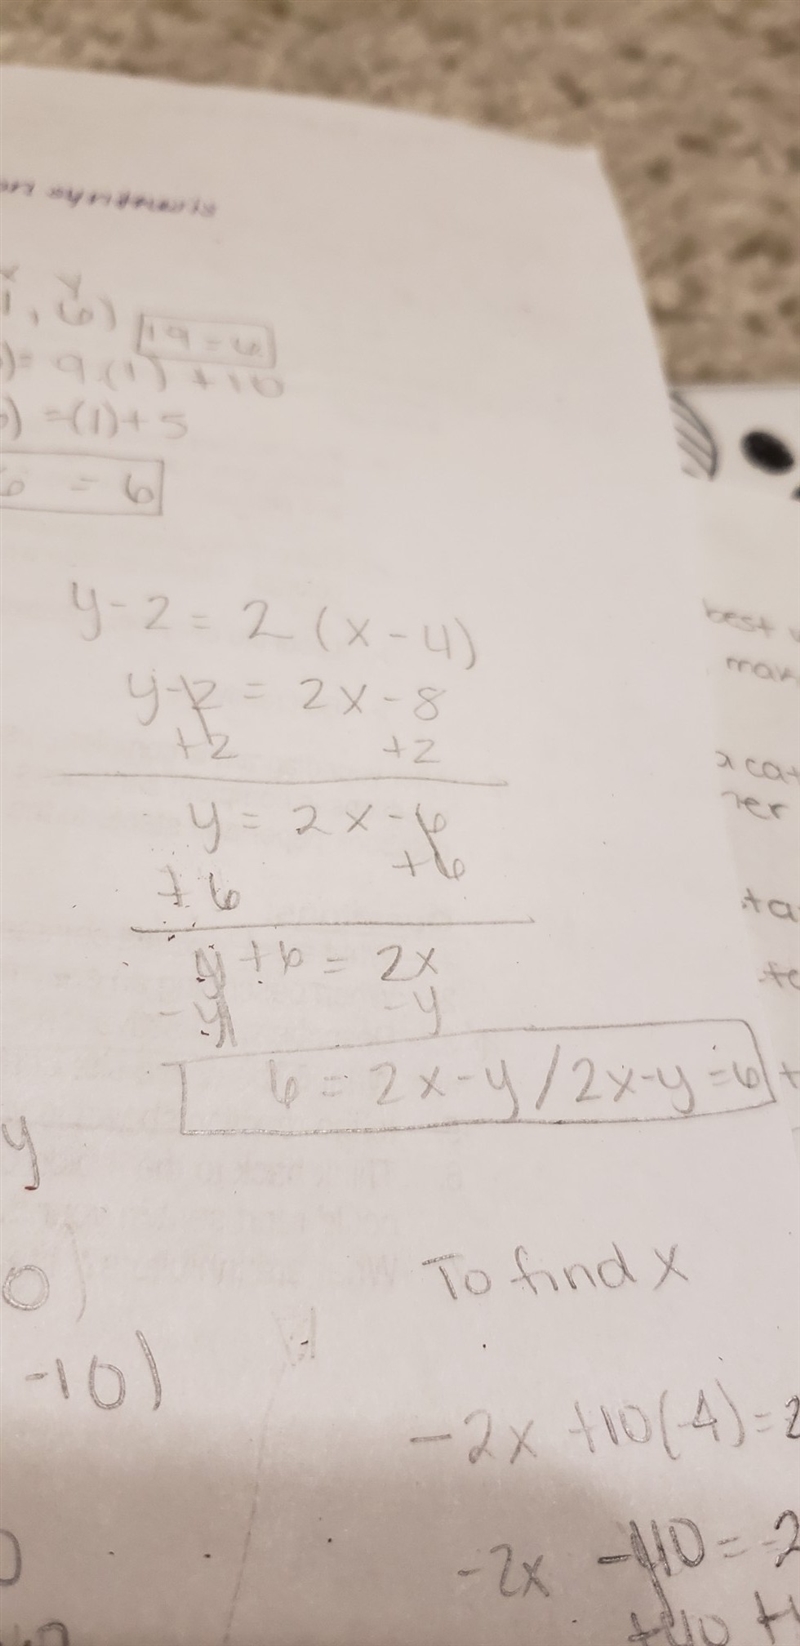 synthesis
x y
1, 6) 19 = 6
)= 9(1) +10
) =(1)+5
6 = 6
y-2=2(x-4)
y-2 = 2x-8
+2 +2
y = 2x-6
+6 +6
y+6 = 2x
-y -y
6 = 2x-y/2x-y=6
y
0)
-10)
To find x
-2x +10(-4)=2
-2x -40=-2
+40 +
best
xcat